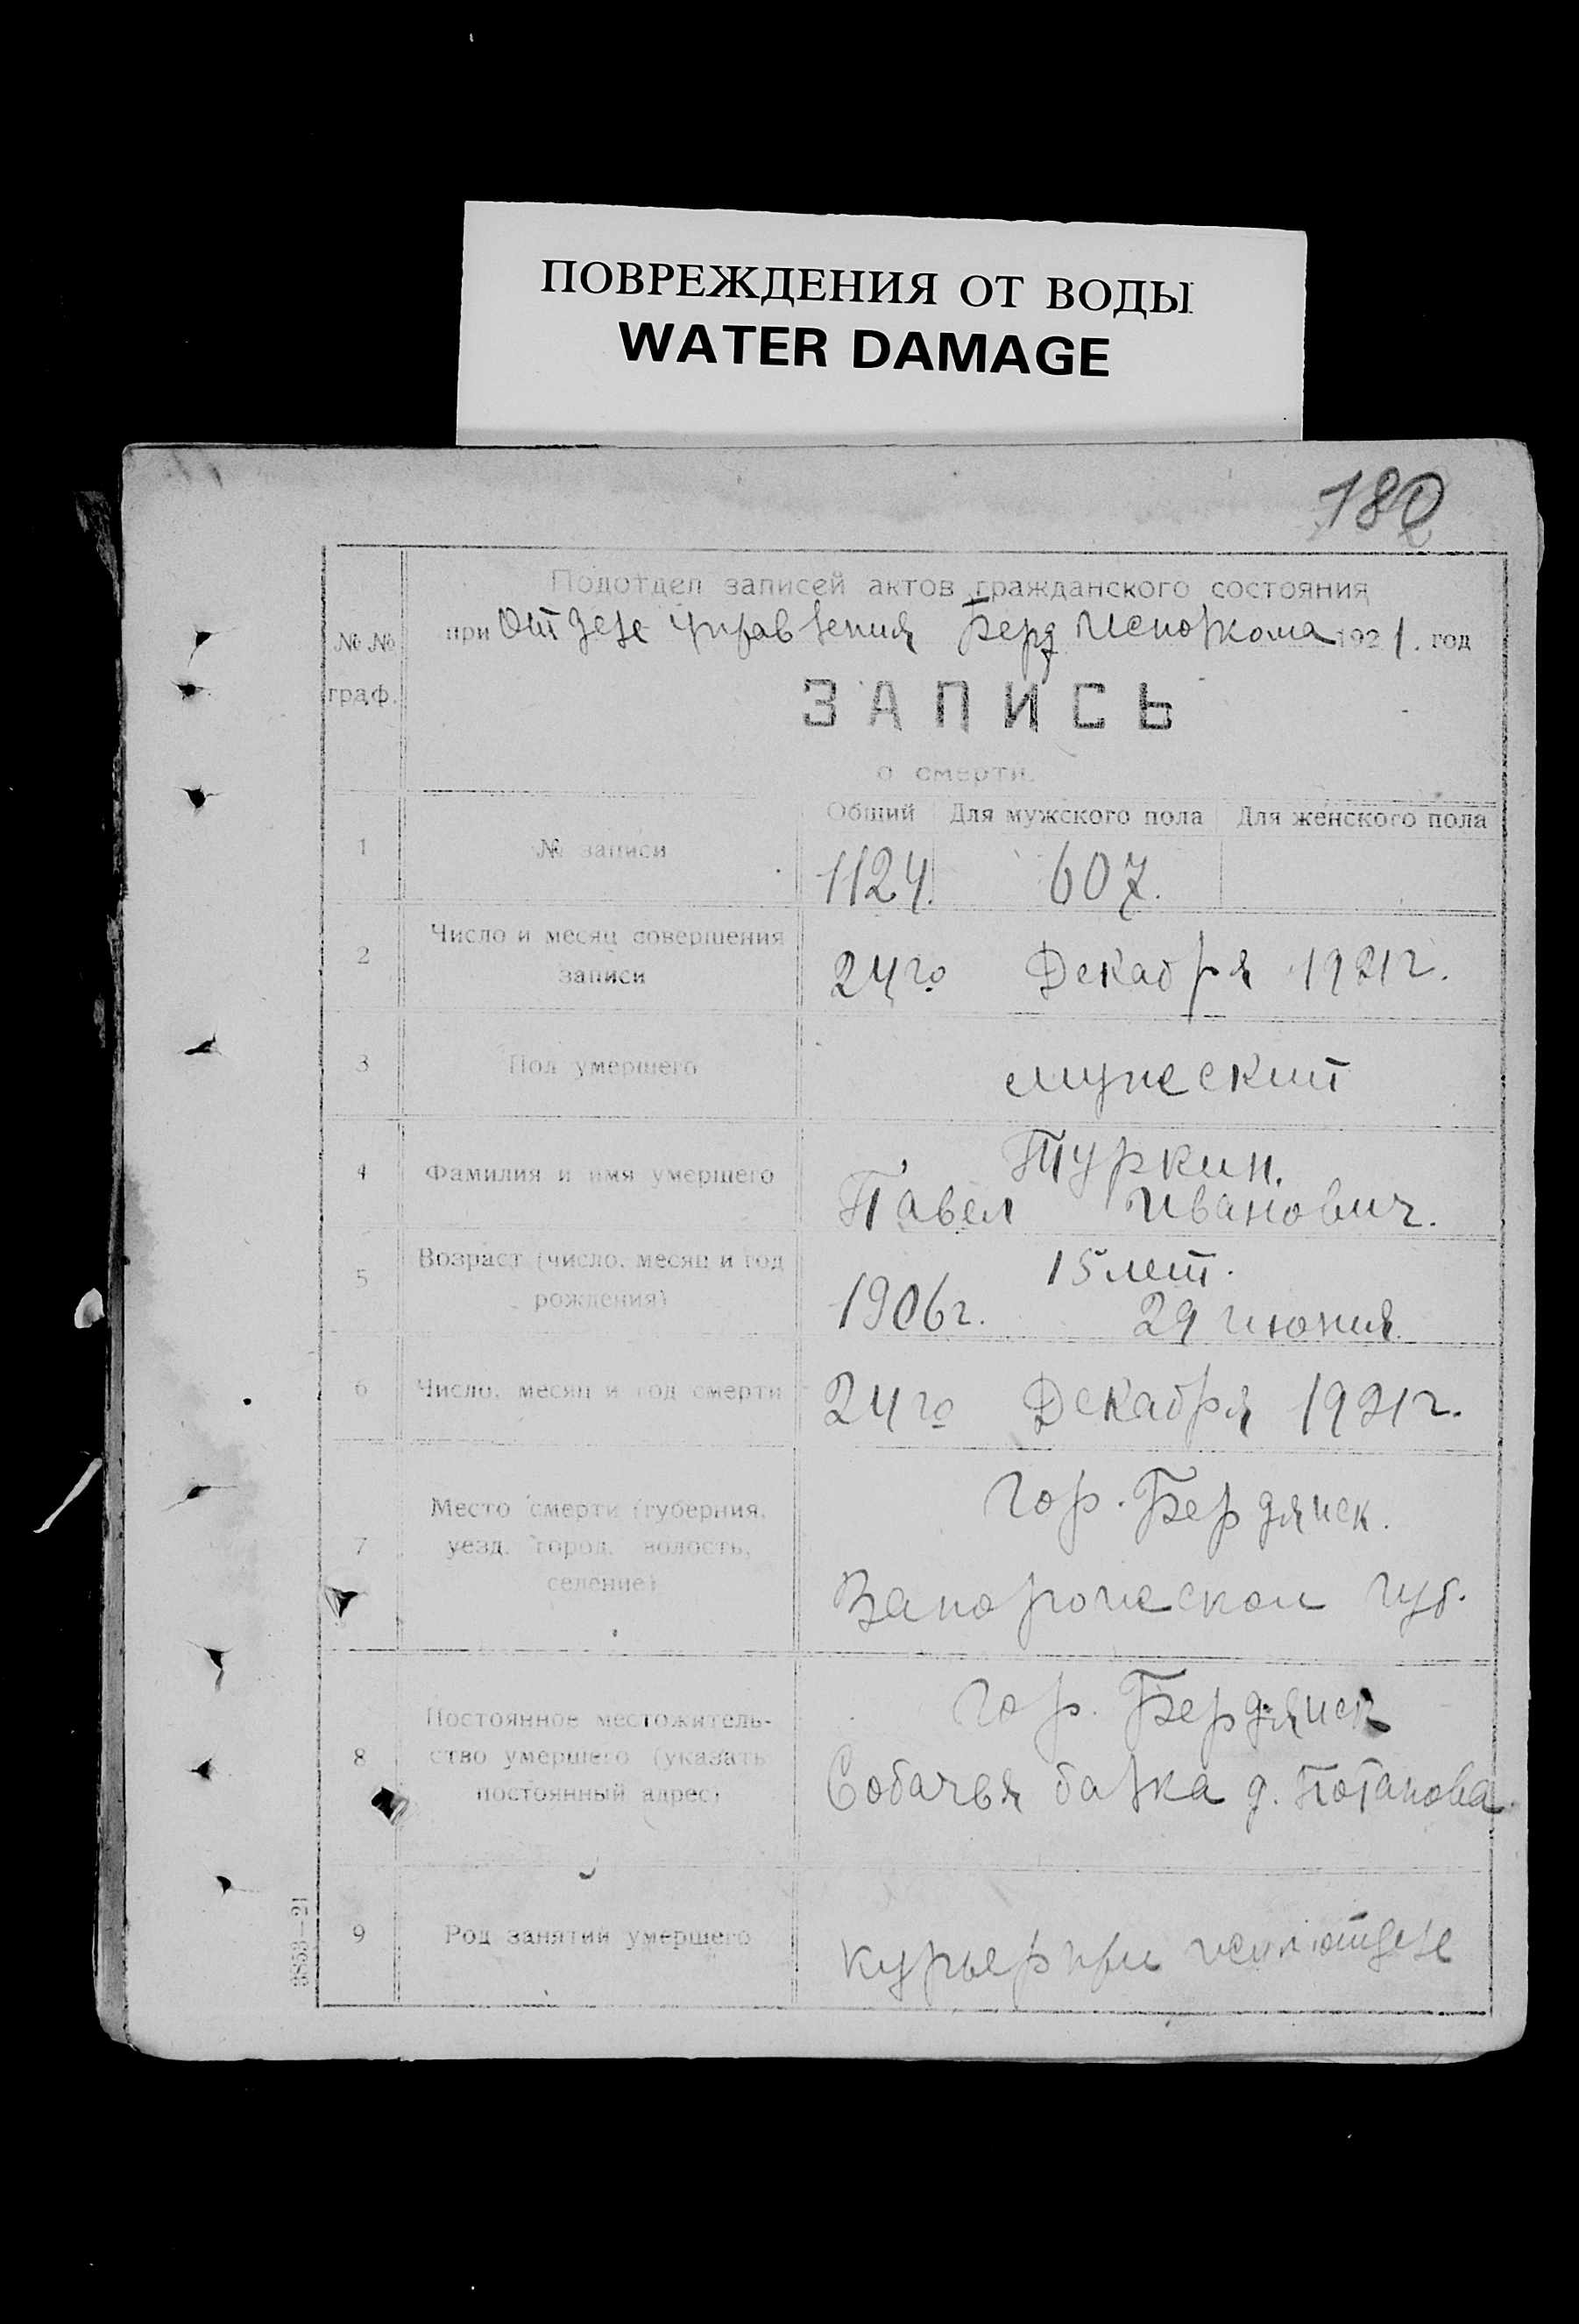 ПОВРЕЖДЕНИЯ ОТ ВОДЫ
WATER DAMAGE
180
Подотдел записей актов гражданского состояния
№ № граф.
при Отделе Управления Берд Исполкома 1921. год
ЗАПИСЬ
о смерти.
Общий Для мужского пола Для женского пола
1 № записи 1124. 607.
2 Число и месяц совершения записи 24го Декабря 1921г.
3 Пол умершего мужеский
4 Фамилия и имя умершего Туркин.
Павел Иванович.
5 Возраст (число, месяц и год рождения) 15 лет.
1906г. 29 июня
6 Число, месяц и год смерти 24го Декабря 1921г.
7 Место смерти (губерния, уезд, город, волость, селение) Гор. Бердянск.
Запорожской губ.
8 Постоянное местожительство умершего (указать постоянный адрес) гор. Бердянск
Собачья балка д. Потапова.
9 Род занятий умершего курьер при
3853—21